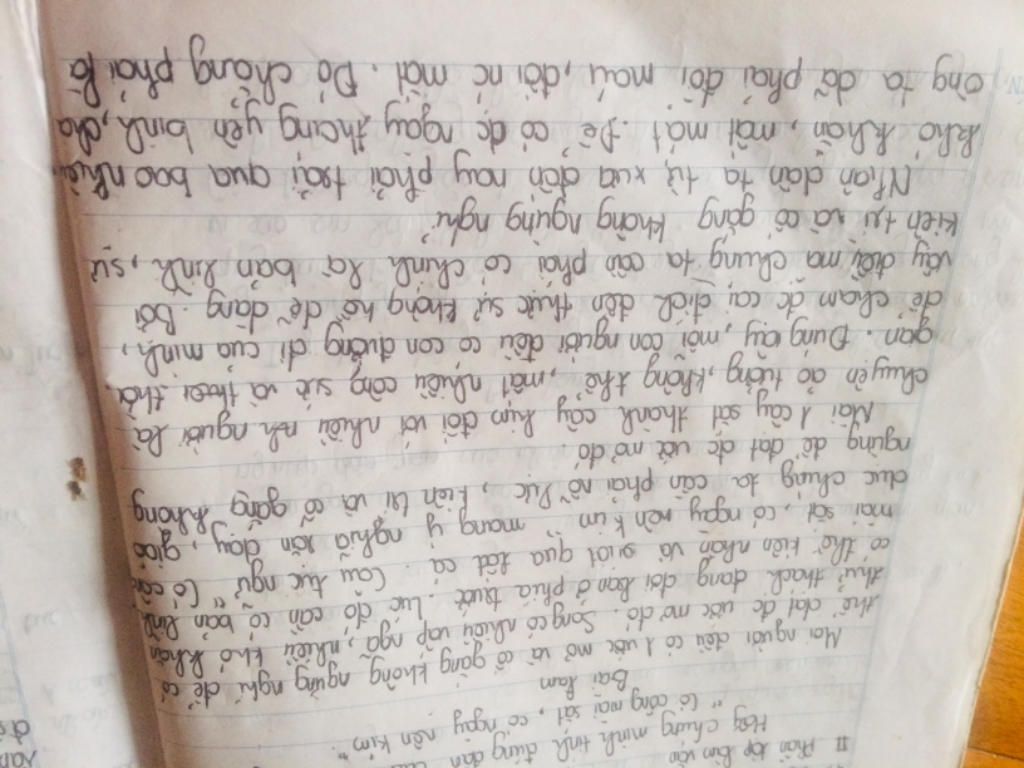 II Phần tập làm văn
Hãy chứng minh tính đúng đắn
"Có công mài sắt, có ngày nên kim"
Bài làm
Mọi người đều có 1 ước mơ và cố gắng không ngừng nghỉ để có
thể đạt đc ước mơ đó. Song có nhiều vấp ngã, nhiều khó khăn
thử thách đang đợi bạn ở phía trước. Lúc đó cần có bản lĩnh
có thể kiên nhẫn và vượt qua tất cả. Câu tục ngữ "Có công
mài sắt, có ngày nên kim" mang ý nghĩa răn dạy, giáo
dục chúng ta cần phải nỗ lực, kiên trì và cố gắng không
ngừng để đạt đc ước mơ đó.
Mài 1 cây sắt thành cây kim đối với nhiều người là
chuyện ảo tưởng, không thể, mất nhiều công sức và thời
gian. Đúng vậy, mỗi con người đều có con đường đi của mình,
để chạm đc cái đích đến thực sự không hề dễ dàng. Bởi
vậy điều mà chúng ta cần phải có chính là bản lĩnh, sự
kiên trì và cố gắng không ngừng nghỉ.
Nhân dân ta từ xưa đến nay phải trải qua bao nhiêu
khó khăn, mất mát. Để có đc ngày tháng yên bình, cha
ông ta đã phải đổi máu, đổi nc mắt. Đó chẳng phải là